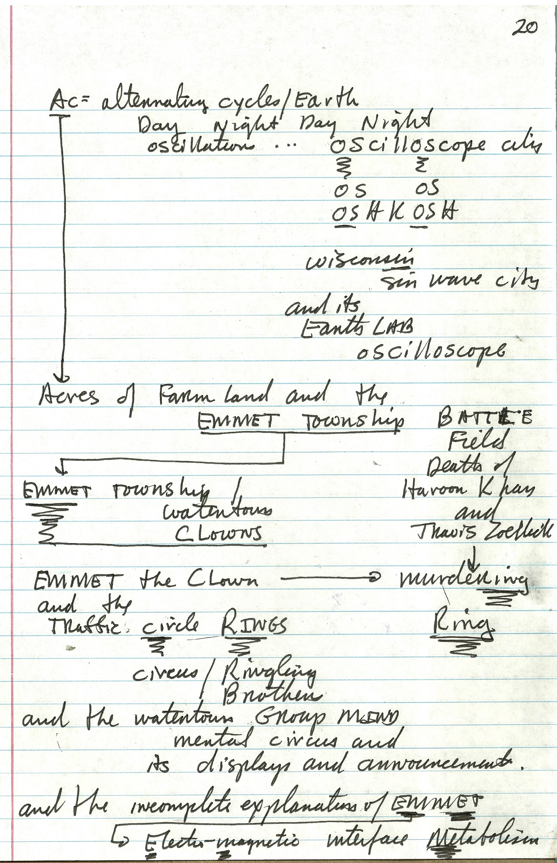 20
Ac= alternating cycles/Earth
Day Night Day Night
oscillations ... OSCillOScope city
OS OS
OSH K OSH
wisconsin
sin wave city
and its
Earth LAB
oscilloscope
Acres of Farm Land and the
EMMET Township
BATTLE
Field
Death of
Haroon Khan
and
Travis
EMMET township /
watertown
CLOWNS
EMMET the Clown
murdering
and the
Traffic circle RINGS
Ring
circus / Ringling
Brothers
and the watertown Group MIND
mental circus and
its displays and announcements.
and the incomplete explanation of EMMET
Electro-magnetic interface Metabolism